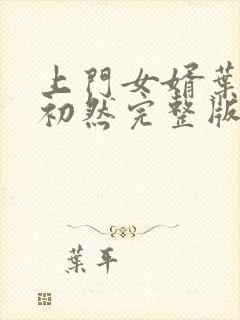 上門女婿葉
初然完整版
葉平